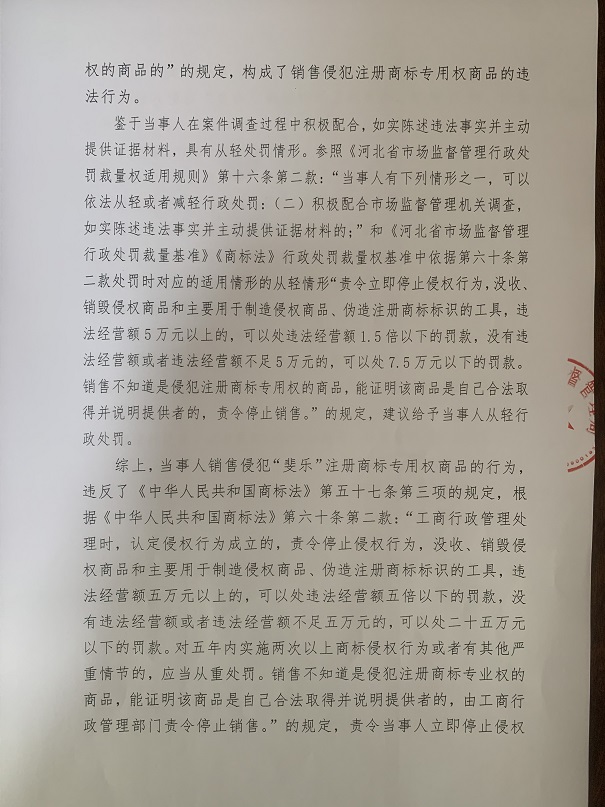 权的商品的”的规定，构成了销售侵犯注册商标专用权商品的违
法行为。
鉴于当事人在案件调查过程中积极配合，如实陈述违法事实并主动
提供证据材料，具有从轻处罚情形。参照《河北省市场监督管理行政处
罚裁量权适用规则》第十六条第二款：“当事人有下列情形之一，可以
依法从轻或者减轻行政处罚：（二）积极配合市场监督管理机关调查，
如实陈述违法事实并主动提供证据材料的；”和《河北省市场监督管理
行政处罚裁量基准》《商标法》行政处罚裁量权基准中依据第六十条第
二款处罚时对应的适用情形的从轻情形“责令立即停止侵权行为，没收、
销毁侵权商品和主要用于制造侵权商品、伪造注册商标标识的工具，违
法经营额5万元以上的，可以处违法经营额1.5倍以下的罚款，没有违
法经营额或者违法经营额不足5万元的，可以处7.5万元以下的罚款。
销售不知道是侵犯注册商标专用权的商品，能证明该商品是自己合法取
得并说明提供者的，责令停止销售。”的规定，建议给予当事人从轻行
政处罚。
综上，当事人销售侵犯“斐乐”注册商标专用权商品的行为，
违反了《中华人民共和国商标法》第五十七条第三项的规定，根
据《中华人民共和国商标法》第六十条第二款：“工商行政管理处
理时，认定侵权行为成立的，责令停止侵权行为，没收、销毁侵
权商品和主要用于制造侵权商品、伪造注册商标标识的工具，违
法经营额五万元以上的，可以处违法经营额五倍以下的罚款，没
有违法经营额或者违法经营额不足五万元的，可以处二十五万元
以下的罚款。对五年内实施两次以上商标侵权行为或者有其他严
重情节的，应当从重处罚。销售不知道是侵犯注册商标专业权的
商品，能证明该商品是自己合法取得并说明提供者的，由工商行
政管理部门责令停止销售。”的规定，责令当事人立即停止侵权